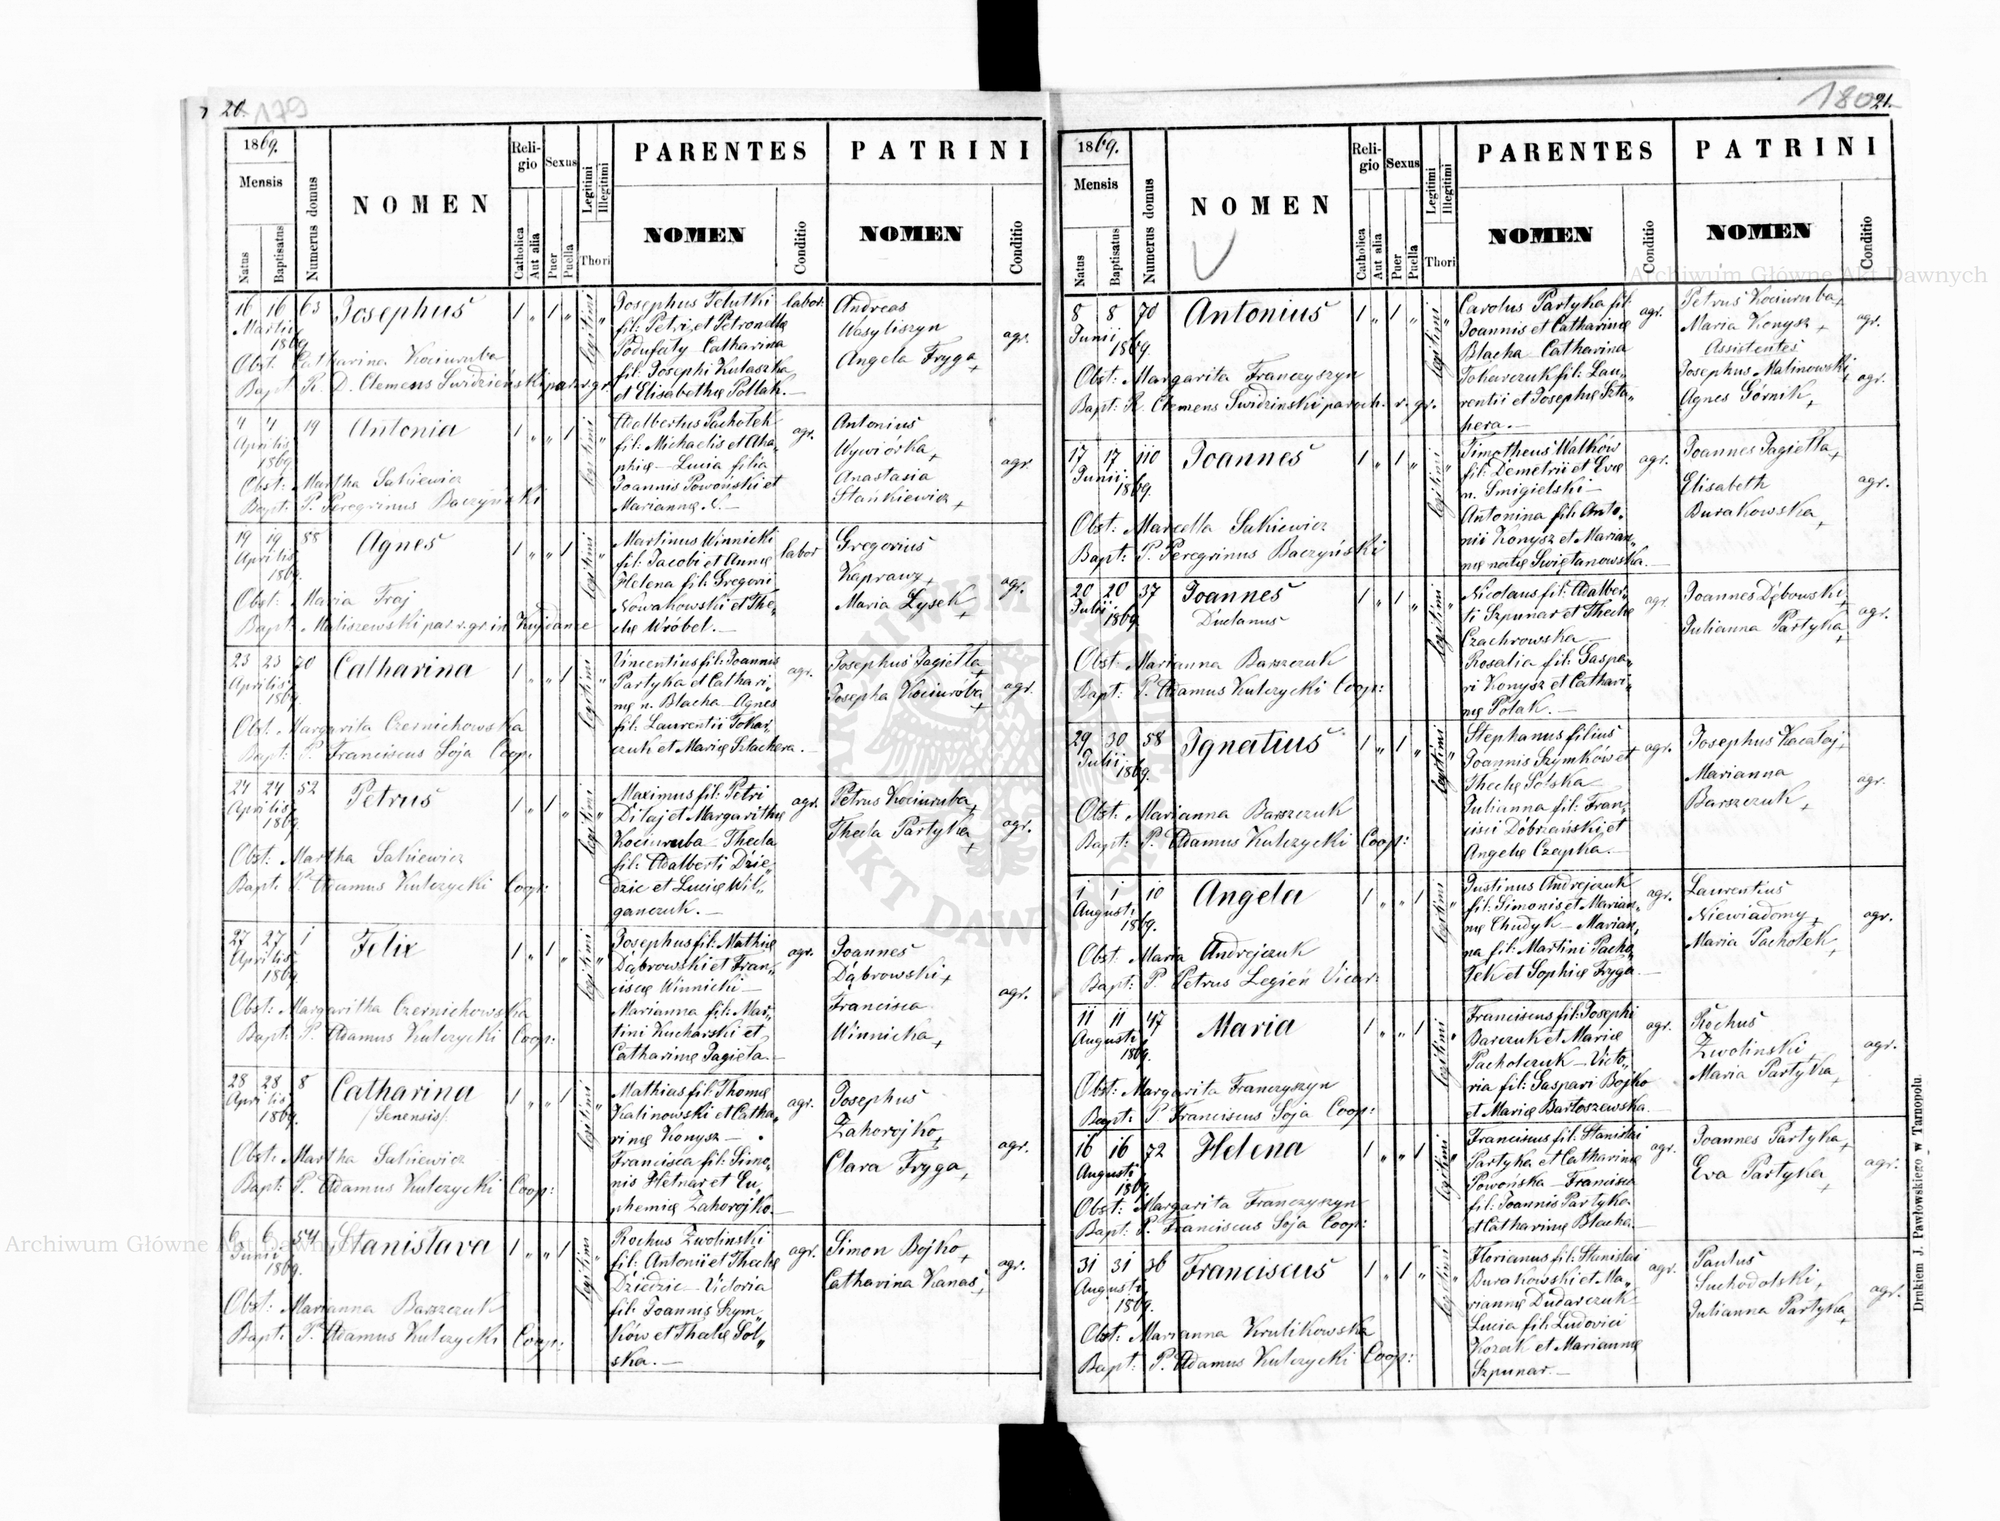 20. 179
1869.
Mensis
Natus
Baptisatus
Numerus domus
NOMEN
Reli-
gio
Catholica
Aut alia
Sexus
Puer
Puella
Legitimi
Illegitimi
Thori
PARENTES
NOMEN
Conditio
PATRINI
NOMEN
Conditio
16 16 63 Josephus 1 „ 1 „ legitimi „
Martii
1869.
Obst. Catharina Kociuruba
Bapt. R. D. Clemens Swidzienski par. r. gr.
Josephus Telutki
fil: Petri et Petronellę
Podufaty Catharina
fil: Josephi Kutaszka
et Elisabethę Pollak.—
labor.
Andreas
Wasyliszyn
Angela Fryga +
agr.
4 4 19 Antonia 1 „ „ 1 legitimi „
Aprilis
1869.
Obst: Martha Sakiewicz
Bapt. P. Peregrinus Baczyński
Adalbertus Pachotek
fil: Michaelis et Aha,,
phię — Lucia filia
Joannis Powoński et
Mariannę
agr.
Antonius
Wywiórka +
Anastasia
Stańkiewicz +
agr.
19 19 88 Agnes 1 „ „ 1 legitimi „
Aprilis
1869.
Obst: Maria Fraj
Bapt. Maliszewski par. r. gr. in Kujdance
Martinus Winnicki
fil: Jacobi et Annę
Helena fil: Gregorii
Nowakowski et The,,
clę Wróbel.—
labor
Gregorius
Kaprawy +
Maria Łysek +
agr.
23 23 70 Catharina 1 „ „ 1 legitimi „
Aprilis
1869.
Obst: Margarita Czernichowska
Bapt: P. Franciscus Soja Coop:
Vincentius fil: Joannis
Partyka et Cathari,,
nę n. Blacha Agnes
fil: Laurentii Tokar,,
czuk et Marię Sztachera.—
agr.
Josephus Jagiełła +
Josepha Kociuróba +
agr.
24 24 52 Petrus 1 „ 1 „ legitimi „
Aprilis
1869.
Obst: Martha Sakiewicz
Bapt: P. Adamus Kulczycki Coop:
Maximus fil: Petri
Dilaj et Margarithę
Kociuruba Thecla
fil: Adalberti Dzie,,
dzic et Lucię Wil,,
ganczuk.—
agr.
Petrus Kociuruba +
Thecla Partyka +
agr.
27 27 1 Felix 1 „ 1 „ legitimi „
Aprilis
1869.
Obst: Margaritha Czernichowska
Bapt: P. Adamus Kulczycki Coop:
Josephus fil: Mathię
Dąbrowski et Fran,,
ciscę Winnicki—
Marianna fil: Mar,,
tini Kucharski et
Catharinę Jagieła.—
agr.
Joannes
Dąbrowski +
Francisca
Winnicka +
agr.
28 28 8 Catharina 1 „ „ 1 legitimi „
Aprilis /Senensis/
1869.
Obst: Martha Sakiewicz
Bapt: P. Adamus Kulczycki Coop:
Mathias fil: Thomę
Kalinowski et Catha,,
rinę Konysz—
Francisca fil: Simo,,
nis Hetnar et Eu,,
phemię Zahorojko.—
agr.
Josephus
Zahorojko +
Clara Fryga +
agr.
6 6 54 Stanislava 1 „ „ 1 legitimi „
Junii
1869.
Obst: Marianna Barszczuk
Bapt: P. Adamus Kulczycki Coop:
Rochus Zwolinski
fil: Antonii et Theclę
Dziedzic Victoria
fil: Joannis Szym,,
ków et Theclę Sol,,
ska.—
agr.
Simon Bojko +
Catharina Kanas +
agr.
180 21.
1869.
Mensis
Natus
Baptisatus
Numerus domus
NOMEN
Reli-
gio
Catholica
Aut alia
Sexus
Puer
Puella
Legitimi
Illegitimi
Thori
PARENTES
NOMEN
Conditio
PATRINI
NOMEN
Conditio
8 8 70 Antonius 1 „ 1 „ legitimi „
Junii
1869.
Obst: Margarita Franczyszyn
Bapt: R. Clemens Swidzinski paroch. r. gr.
Carolus Partyka fil:
Joannis et Catharinę
Blacha Catharina
Tokarczuk fil: Lau,,
rentii et Josephę Szta,,
hera.—
agr.
Petrus Kociuruba +
Maria Konysz +
Assistentes
Josephus Malinowski +
Agnes Górnik +
agr.
agr.
17 17 110 Joannes 1 „ 1 „ legitimi „
Junii
1869.
Obst: Marcella Sakiewicz
Bapt: P. Peregrinus Baczyński
Timotheus Walków
fil: Demetrii et Evę
n. Smigielski—
Antonina fil: Anto,,
nii Konysz et Marian,,
nę natę Swiętanowska.—
agr.
Joannes Jagiełła +
Elisabeth
Burakowska +
agr.
20 20 37 Joannes 1 „ 1 „ legitimi „
Julii Dudanus
1869.
Obst: Marianna Barszczuk
Bapt: P. Adamus Kulczycki Coop:
Nicolaus fil: Adalber,,
ti Szpunar et Theclę
Czachrowska—
Rosalia fil: Gaspa,,
ri Konysz et Cathari,,
nę Polak.—
agr.
Joannes Dębowski +
Julianna Partyka +
agr.
29 30 58 Ignatius 1 „ 1 „ legitimi „
Julii
1869.
Obst: Marianna Barszczuk
Bapt: P. Adamus Kulczycki Coop:
Stephanus filius
Joannis Szymków et
Theclę Solska
Julianna fil: Fran,,
cisci Dobrzański et
Angelę Czapka.—
agr.
Josephus Kacałaj +
Marianna
Barszczuk +
agr.
1 1 10 Angela 1 „ „ 1 legitimi „
Augusti
1869.
Obst: Maria Andrejczuk
Bapt: P. Petrus Legień Vicar:
Justinus Andrejczuk
fil: Simonis et Marian,,
nę Chudyk—Marian,,
na fil: Martini Pacho,,
łek et Sophię Fryga.—
agr.
Laurentius
Niewiadomy +
Maria Pachołek +
agr.
11 11 47 Maria 1 „ „ 1 legitimi „
Augusti
1869.
Obst: Margarita Franczyszyn
Bapt: P. Franciscus Soja Coop:
Franciscus fil: Josephi
Barczuk et Marię
Pacholczuk—Victo,,
ria fil: Gaspari Bojko
et Marię Bartoszewska.—
agr.
Rochus
Zwolinski
Maria Partyka +
agr.
16 16 72 Helena 1 „ „ 1 legitimi „
Augusti
1869.
Obst: Margarita Franczyszyn
Bapt: P. Franciscus Soja Coop:
Franciscus fil: Stanislai
Partyka et Catharinę
Powońska—Francisca
fil: Joannis Partyka
et Catharinę Blacha.—
agr.
Joannes Partyka +
Eva Partyka +
agr.
31 31 36 Franciscus 1 „ 1 „ legitimi „
Augusti
1869.
Obst: Marianna Krulikowska
Bapt: P. Adamus Kulczycki Coop:
Florianus fil: Stanislai
Burakowski et Ma,,
riannę Dudarczuk
Lucia fil: Ludovici
Kozak et Mariannę
Szpunar.—
agr.
Paulus
Suchodolski +
Julianna Partyka +
agr.
Drukiem J. Pawłowskiego w Tarnopolu.
Archiwum Główne Akt Dawnych
Archiwum Główne Akt Dawnych
ARCHIWUM GŁÓWNE AKT DAWNYCH